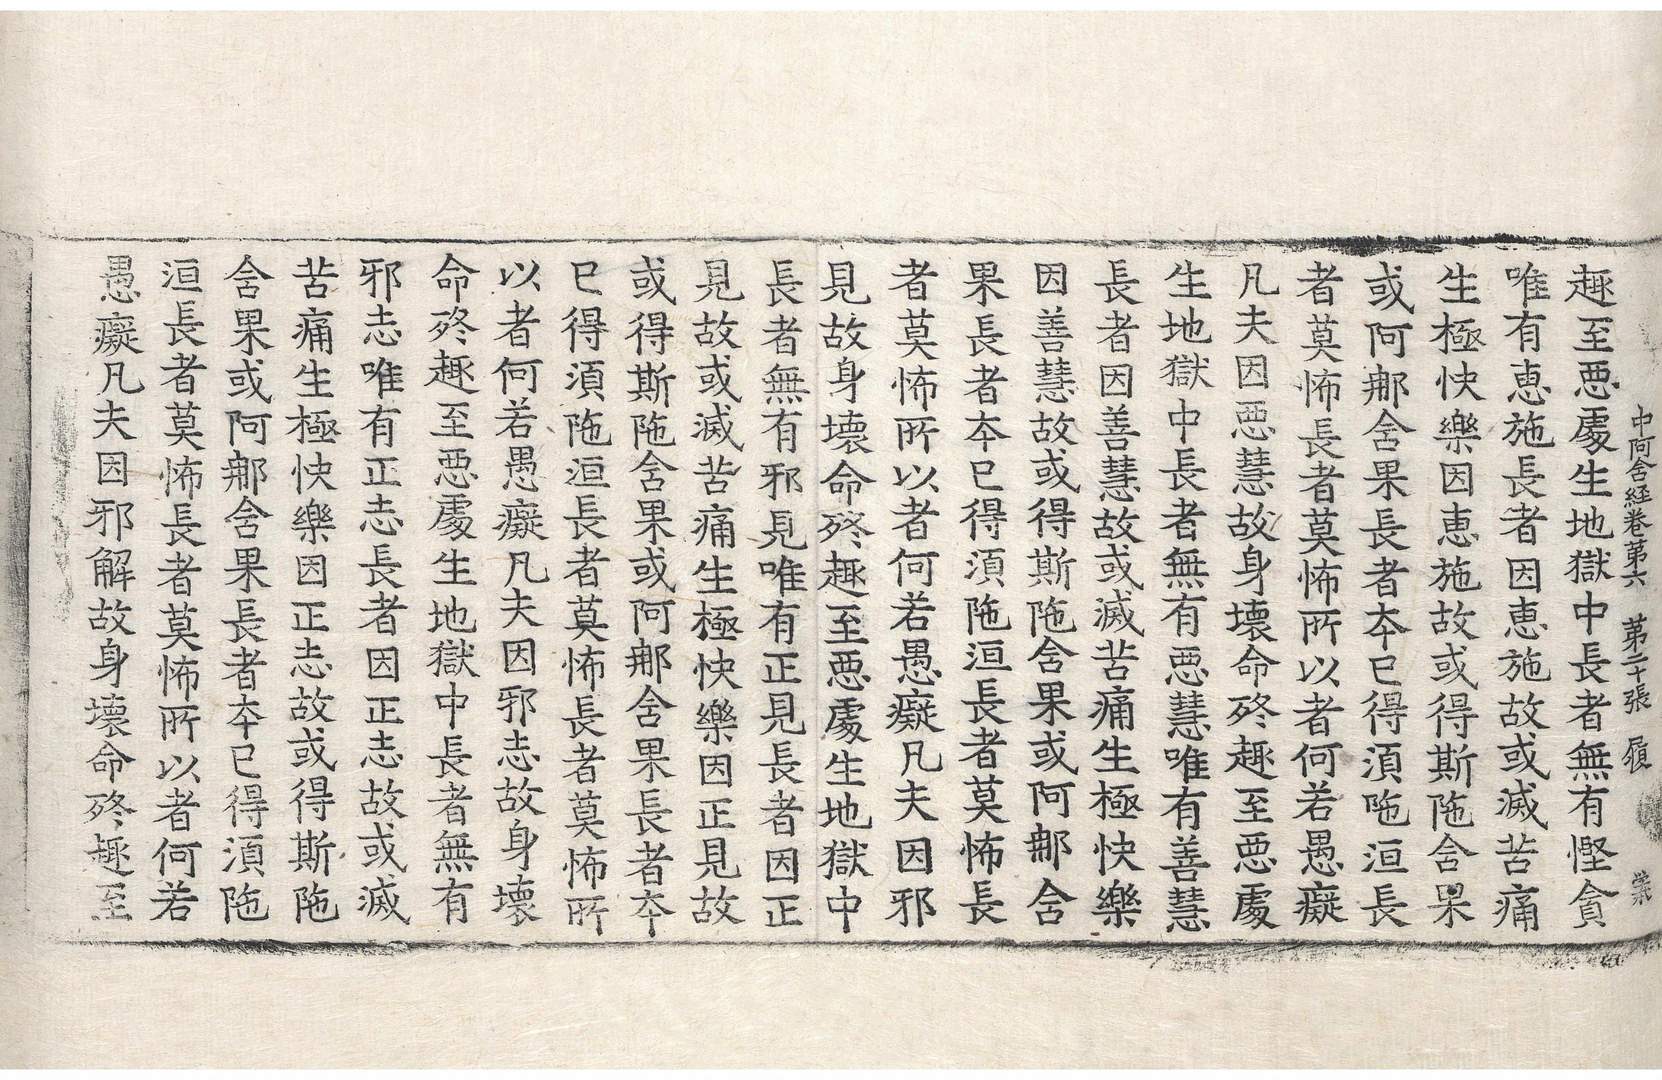 中阿含經卷第六 第二十張 履
趣至惡處生地獄中長者無有慳貪
唯有恵施長者因恵施故或滅苦痛
生極快樂因恵施故或得斯陁含果
或阿那含果長者夲已得湏陁洹長
者莫怖長者莫怖所以者何若愚癡
凡夫因惡慧故身壞命終趣至惡處
生地獄中長者無有惡慧唯有善慧
長者因善慧故或滅苦痛生極快樂
因善慧故或得斯陁含果或阿那含
果長者夲已得湏陁洹長者莫怖長
者莫怖所以者何若愚癡凡夫因邪
見故身壞命終趣至惡處生地獄中
長者無有邪見唯有正見長者因正
見故或滅苦痛生極快樂因正見故
或得斯陁含果或阿那含果長者夲
已得湏陁洹長者莫怖長者莫怖所
以者何若愚癡凡夫因邪志故身壞
命終趣至惡處生地獄中長者無有
邪志唯有正志長者因正志故或滅
苦痛生極快樂因正志故或得斯陁
含果或阿那含果長者夲已得湏陁
洹長者莫怖長者莫怖所以者何若
愚癡凡夫因邪解故身壞命終趣至